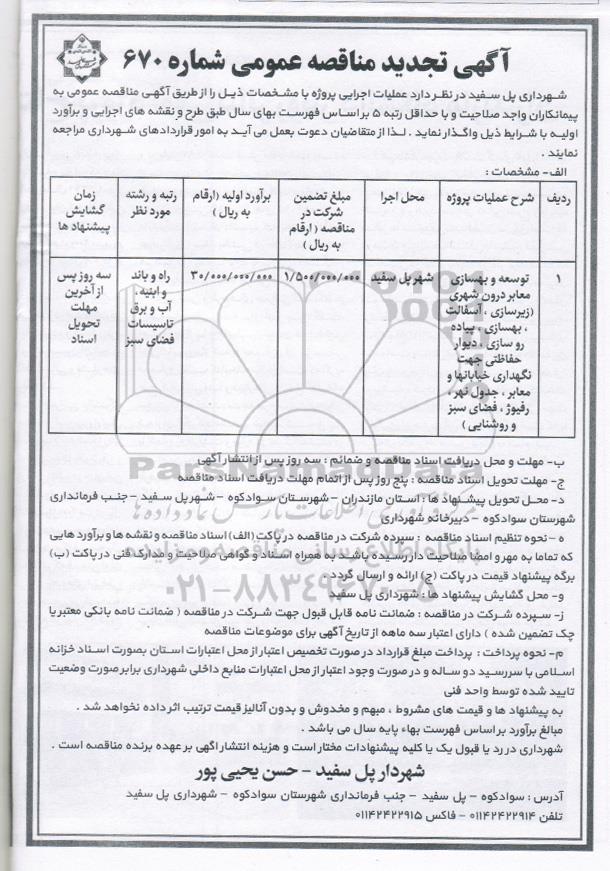 آگهی تجدید مناقصه عمومی شماره ۶۷۰
شهرداری پل سفید در نظر دارد عملیات اجرایی پروژه با مشخصات ذیل را از طریق آگهی مناقصه عمومی به
پیمانکاران واجد صلاحیت و با حداقل رتبه ۵ بر اساس فهرست بهای سال طبق طرح و نقشه های اجرایی و برآورد
اولیه با شرایط ذیل واگذار نماید . لذا از متقاضیان دعوت بعمل می آید به امور قراردادهای شهرداری مراجعه
نمایند .
الف- مشخصات :
ردیف | شرح عملیات پروژه | محل اجرا | مبلغ تضمین شرکت در مناقصه ( ارقام به ریال ) | برآورد اولیه (ارقام به ریال ) | رتبه و رشته مورد نظر | زمان گشایش پیشنهاد ها
۱ | توسعه و بهسازی معابر درون شهری (زیرسازی ، آسفالت ، بهسازی ، پیاده رو سازی ، دیوار حفاظتی جهت نگهداری خیابانها و معابر ، جدول نهر ، رفیوژ ، فضای سبز و روشنایی ) | شهر پل سفید | ۱/۵۰۰/۰۰۰/۰۰۰ | ۳۰/۰۰۰/۰۰۰/۰۰۰ | راه و باند و ابنیه ، آب و برق تاسیسات فضای سبز | سه روز پس از آخرین مهلت تحویل اسناد
ب- مهلت و محل دریافت اسناد مناقصه و ضمائم : سه روز پس از انتشار آگهی
ج- مهلت تحویل اسناد مناقصه : پنج روز پس از اتمام مهلت دریافت اسناد مناقصه
د- محل تحویل پیشنهاد ها : استان مازندران – شهرستان سوادکوه – شهر پل سفید – جنب فرمانداری
شهرستان سوادکوه – دبیرخانه شهرداری
ه – نحوه تنظیم اسناد مناقصه : سپرده شرکت در مناقصه در پاکت (الف) اسناد مناقصه و نقشه ها و برآورد هایی
که تماما به مهر و امضا صلاحیت دار رسیده باشد به همراه اسناد و گواهی صلاحیت و مدارک فنی در پاکت (ب)
برگه پیشنهاد قیمت در پاکت (ج) ارائه و ارسال گردد .
و- محل گشایش پیشنهاد ها : شهرداری پل سفید
ز- سپرده شرکت در مناقصه : ضمانت نامه قابل قبول جهت شرکت در مناقصه ( ضمانت نامه بانکی معتبر یا
چک تضمین شده ) دارای اعتبار سه ماهه از تاریخ آگهی برای موضوعات مناقصه
م- نحوه پرداخت : پرداخت مبلغ قرارداد در صورت تخصیص اعتبار از محل اعتبارات استان بصورت اسناد خزانه
اسلامی با سررسید دو ساله و در صورت وجود اعتبار از محل اعتبارات منابع داخلی شهرداری برابر صورت وضعیت
تایید شده توسط واحد فنی
به پیشنهاد ها و قیمت های مشروط ، مبهم و مخدوش و بدون آنالیز قیمت ترتیب اثر داده نخواهد شد .
مبالغ برآورد بر اساس فهرست بهاء پایه سال می باشد .
شهرداری در رد یا قبول یک یا کلیه پیشنهادات مختار است و هزینه انتشار اگهی بر عهده برنده مناقصه است .
شهردار پل سفید – حسن یحیی پور
آدرس : سوادکوه – پل سفید – جنب فرمانداری شهرستان سوادکوه – شهرداری پل سفید
تلفن ۰۱۱۴۲۴۲۲۹۱۴ – فاکس ۰۱۱۴۲۴۲۲۹۱۵